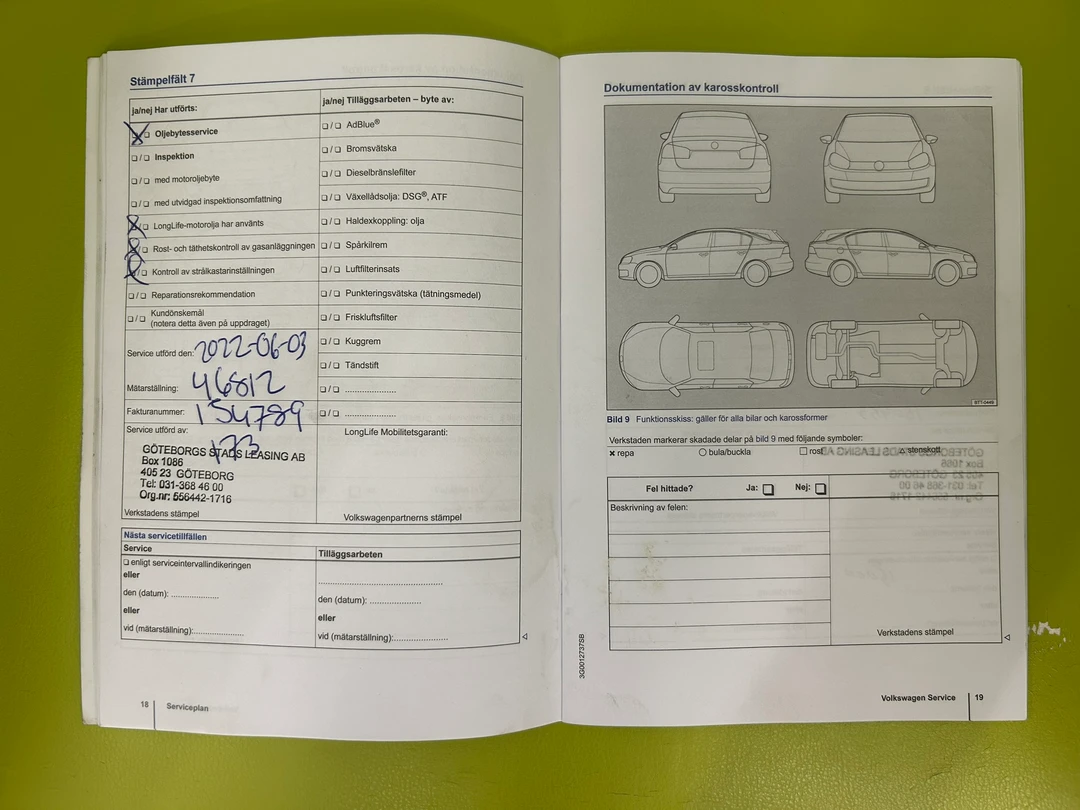 Stämpelfält 7
ja/nej Har utförts:
❑/❑ Oljebytesservice
❑/❑ Inspektion
❑/❑ med motoroljebyte
❑/❑ med utvidgad inspektionsomfattning
❑/❑ LongLife-motorolja har använts
❑/❑ Rost- och täthetskontroll av gasanläggningen
❑/❑ Kontroll av strålkastarinställningen
❑/❑ Reparationsrekommendation
❑/❑ Kundönskemål
(notera detta även på uppdraget)
Service utförd den: 2022-06-03
Mätarställning: 46812
Fakturanummer: 154789
Service utförd av: 173
GÖTEBORGS STADS LEASING AB
Box 1086
405 23 GÖTEBORG
Tel: 031-368 46 00
Org.nr: 556442-1716
Verkstadens stämpel
ja/nej Tilläggsarbeten – byte av:
❑/❑ AdBlue®
❑/❑ Bromsvätska
❑/❑ Dieselbränslefilter
❑/❑ Växellådsolja: DSG®, ATF
❑/❑ Haldexkoppling: olja
❑/❑ Spårkilrem
❑/❑ Luftfilterinsats
❑/❑ Punkteringsvätska (tätningsmedel)
❑/❑ Friskluftsfilter
❑/❑ Kuggrem
❑/❑ Tändstift
❑/❑ .....................
❑/❑ .....................
LongLife Mobilitetsgaranti:
Volkswagenpartnerns stämpel
Nästa servicetillfällen
Service
❑ enligt serviceintervallindikeringen
eller
den (datum): ...................
eller
vid (mätarställning):....................
Tilläggsarbeten
.................................................
den (datum): ....................
eller
vid (mätarställning):.....................
18 Serviceplan
Dokumentation av karosskontroll
BTT-0449
Bild 9 Funktionsskiss: gäller för alla bilar och karossformer
Verkstaden markerar skadade delar på bild 9 med följande symboler:
× repa ○ bula/buckla □ rost △ stenskott
Fel hittade? Ja: ❑ Nej: ❑
Beskrivning av felen:
Verkstadens stämpel
3G0012737SB
Volkswagen Service 19